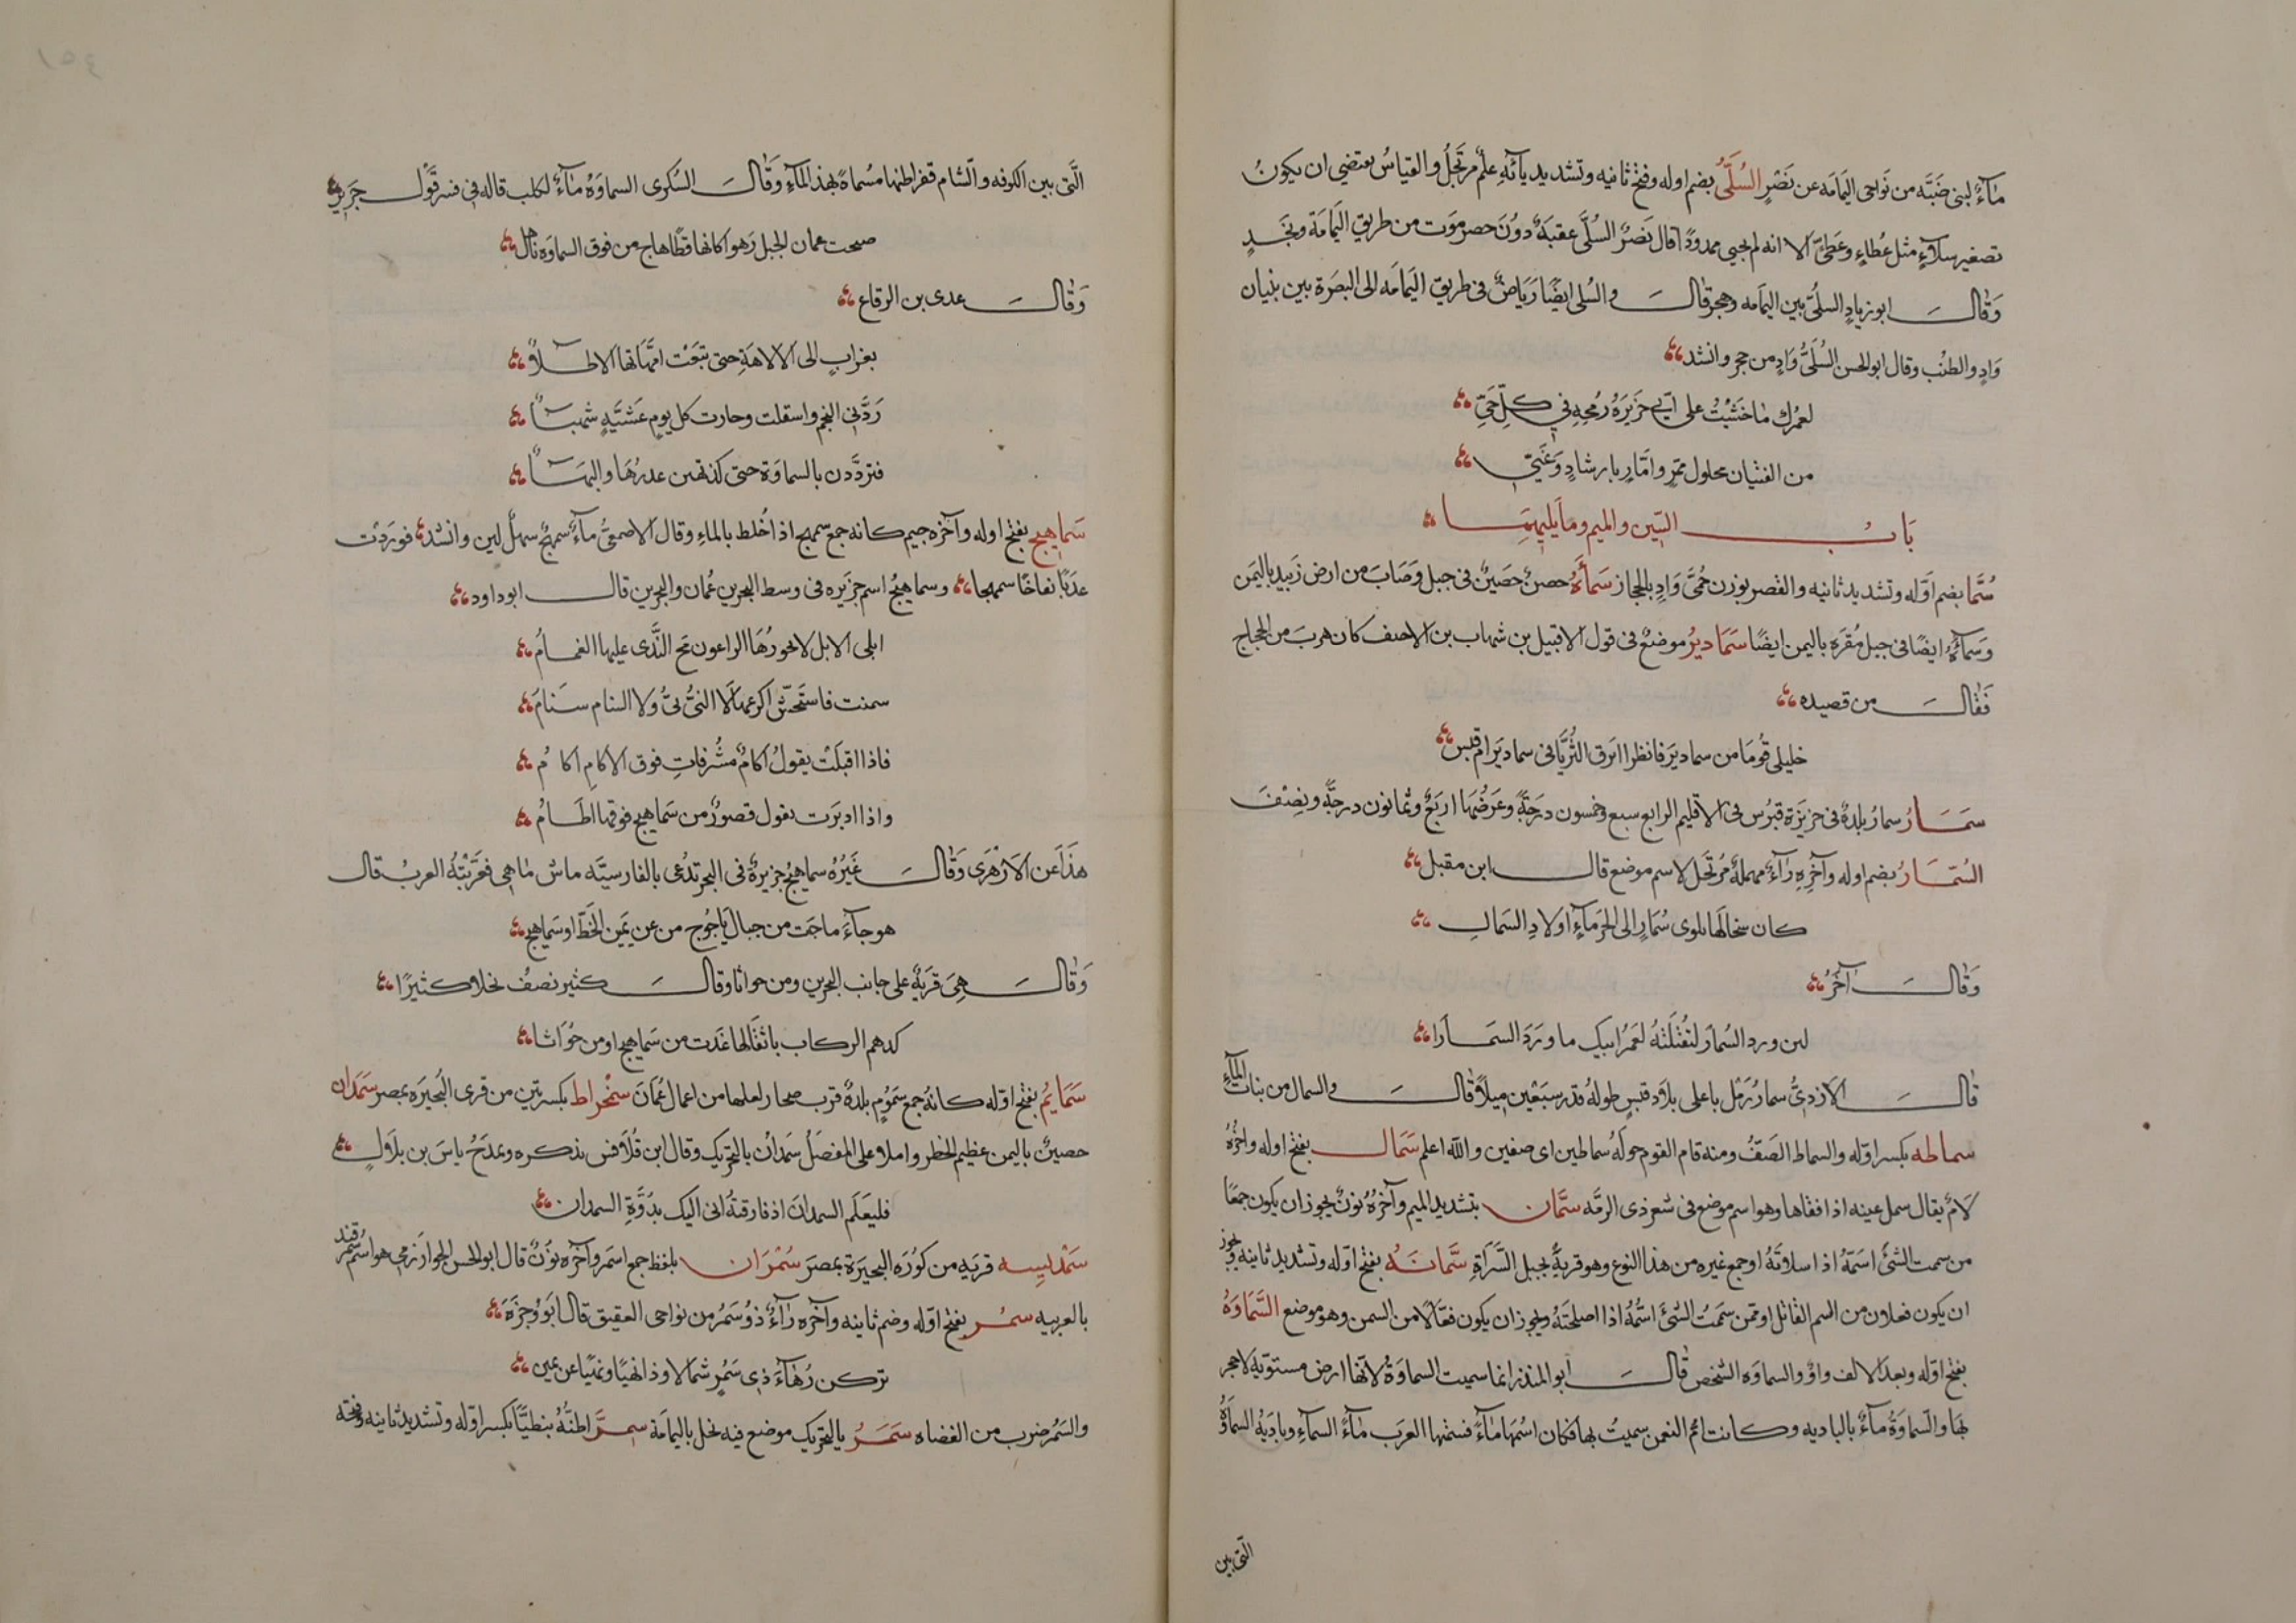 مآءٌ لبنى ضَبَّه من نَواحى اليَمامَه عن نَصْرٍ السُلَىُّ بضم اوله وفتح ثانيه وتشديد يآئهِ علمٌ مرتَجَلُ والقياسُ يقتضى ان يكونُ
تصغير سلآءٍ مثل عُطاءٍ وعَطَىّ الا انه لم يجى ممدودًا قال نَصْرٌ السُلَىّ عقبَةٌ دوُنَ حضر مَوَت من طريق اليَمامَة ونجَدٍ
وَقال ابو زيادٍ السلُىّ بين اليمامَه وهجر قال والسُلى ايضًا رَيَاضٌ فى طريق اليَمامَه الى البصَرة بين بنيان
وَادٍ والطنُب وقال ابو الحسن السُلَىُّ وَادٍ من حجر وانشد
لعمرُك ما خَشيْتُ على ابَىٍ جزيرَة رُمحِهِ فى كلّ حَىّ
من الفتيان محلول ممرٍ وامَّارٍ بارشادٍ وَغَىّ
بَابُ السّين والميم وما يَليهِمَا
سُمَّا بضم اوَّله وتشديد ثانيه والقصر بوزن حُمَّى وَادٍ بالحجاز سَمآءَةُ حصنٌ حَصَينٌ فى جبل وَصَابَ من ارض زَبيد باليَمَن
وَسمآءَةُ ايضًا فى جبل مُقرَه باليمن ايضًا سَمَاديرُ موضعٌ فى قول الاقبيل بن شهاب بن الاحنف كان هربَ من الحجاج
فَقال من قصيده
خليلى قُومَا من سماديَر فانظرا ابَرق الثُّرَيَّا فى سماديَر ام قبس
سَمَارُ سمارُ بلدةٌ فى جزيَرة قبرُس فى الاقليم الرابع سبع وخمسون درَجَةً وعَرضُهَا اربَعٌ وثمانون درجةً ونِصْفَ
السُّمَارُ بضم اوله وآخرِهِ رآءٌ مهملةٌ مُرتَجَل لاسم موضع قال ابن مقبل
كان سخالهَا بلوى سُمَارٍ الى الخرَمآءِ اولادِ السَمالِ
وَقال آخَرُ
لىن ورد السُمارَ لنَقْتُلَنّهُ لعَمرُ ابيكِ ما ورَدَ السَمَارا
قال الازدىُّ سمارُ رَمْل باعلى بلاد قيسٍ طولهُ قدر سَبَعْين ميلاً قال والسمال من بنات المآءِ
سماطه بكسر اوّله والسماط الصَفُّ ومنه قام القوم حولَهُ سماطين اى صفين والله اعلم سَمَال بفتح اوله واخرُهُ
لامٌ يقال سمل عينه اذا فقاها وهو اسم موضع فى شعر ذى الرمَّه سمَّان بتشديد الميم وآخرُهُ نونٌ يجوز ان يكون جمعًا
من سمت الشئَ اسَمهُ اذا سلاتَهُ او جمع غيره من هذا النوع وهو قريةٌ بجبل السَّرَاةِ سَّمانَةُ بفتح اوّله وتشديد ثانيه ويجوز
ان يكون فعلان من السم القاتل او ممّن سمَمتُ الشئَ اسُمّهُ اذا اصلحتَهُ ويجوز ان يكون فعَّالًا من السمن وهو موضع السَّمَاوَةُ
بفتح اوّله وبعَد الالف واوٌ والسماوَه الشخص قال ابو المنذر انما سميت السماوَةُ لانها ارض مستوّيه لا حجر
بهَا والسّماوَةُ مآءٌ بالباديه وكانت ام النعمن سميتُ بها فكان اسْمَها مآءُ فسمتها العرَب مآءُ السمآءِ وباديَةُ السماوَةُ
التى بين
الَّتى بين الكوفه والشام قفر اظنها مسُماةٌ بهذا المآءِ وَقالَ السُكرى السماوَة مآءٌ لكلب قاله فى فسر قَوْل جَريرٍ
صبحت عمان الخيل رَهوا كانها قطًا هاج من فوق السماوَه ناهل
وَقال عدى بن الرقاع
بغرابٍ الى الالاهَةِ حتى تبَعَتْ امَّهَاتها الاطلآءُ
رَدَّنى النجم واستقلت وحارت كل يومٍ عَشيَّةٍ شهبآءُ
فتردَّدن بالسماوَة حتى كذبتهىن غدرُهَا والنِهَآءُ
سَمَاهيج بفتح اوله وآخرُه جيم كانه جمع سمهج اذا خُلط بالماءِ وقال الاصمعىُّ مآءٌ سمهجٌ سهلٌ لين وانشد فورَدَت
عذبًا نقاخًا سمهجا وسماهيجُ اسم جزيَره فى وسط البحرين عُمان والبحرين قال ابو داود
ابلى الابل لا يحورُهَا الراعون مج النَّدى عليها الغمامُ
سمنت فاستحَشّ اكرعها لَا النىُّ نىُّ ولا السنام سنَامَ
فاذا اقبلَت يقولُ اكامٌ مشُرفاتِ فوق الاكام اكامُ
واذا ادبَرَت يقول قصورٌ من سَماهيج فوقها اطَامُ
هذَا عن الازهَرى وَقالَ غَيَرُهُ سماهيجُ جزيرةٌ فى البحر تدُعى بالفارسيَّه ماش ماهى فعَرَّبتْهُ العربُ قال
هوجآءَ ماجَت من جبال يَاجُوج من عن يَمين الخَطّ او سَماهيج
وَقال هِىَ قَريَةٌ على جانب البحرين ومن حواثا وقالَ كثير نصفُ نخلا كثيرًا
كدهم الركاب باثقالها غدَت من سَماهيج او من حُوَاثا
سَمَايمُ بفتح اوّله كانهُ جمع سَمَوُمٍ بلدةٌ قرب صحار لعلها من اعمال عُمانَ سنْحِراط بكسرتين من قرى البُحيرَه بمصر سَمَدان
حصينٌ باليمن عظيم الخطر واملا على المفضَلُ سَمَدانُ بالتحريك وقال ابن قُلاَقس يذكره ويمدَحُ ياسَ بن بلاَلٍ
فليَعلَم السمدانَ اذ فارقتهُ انى اليك بذرْوَةِ السمدان
سَمْديسِه قريَه من كوُرَه البحيرَة بمصرَ سُمْرَان بلفظ جمع اسمَر وآخرُه نوُنٌ قال ابو الحسن الخوارَزمى هو اسُم سَمُر قند
بالعربيه سمُر بفتح اوّله وضم ثانيه وآخره رآءٌ ذوُ سَمُر من نواحى العقيق قال ابَوُ وجزَهَ
تركىن زُهآءَ ذى سَمُرٍ شمالا وذا نهيًا ونهيًا عن يمين
والسَمُر ضرب من العضاه سَمَرُ يالتحريك موضع فيه نخل باليمامَة سِمَّر اظنُّهُ بنطيًّا بكسر اوّله وتشديد ثانيه وفتحه